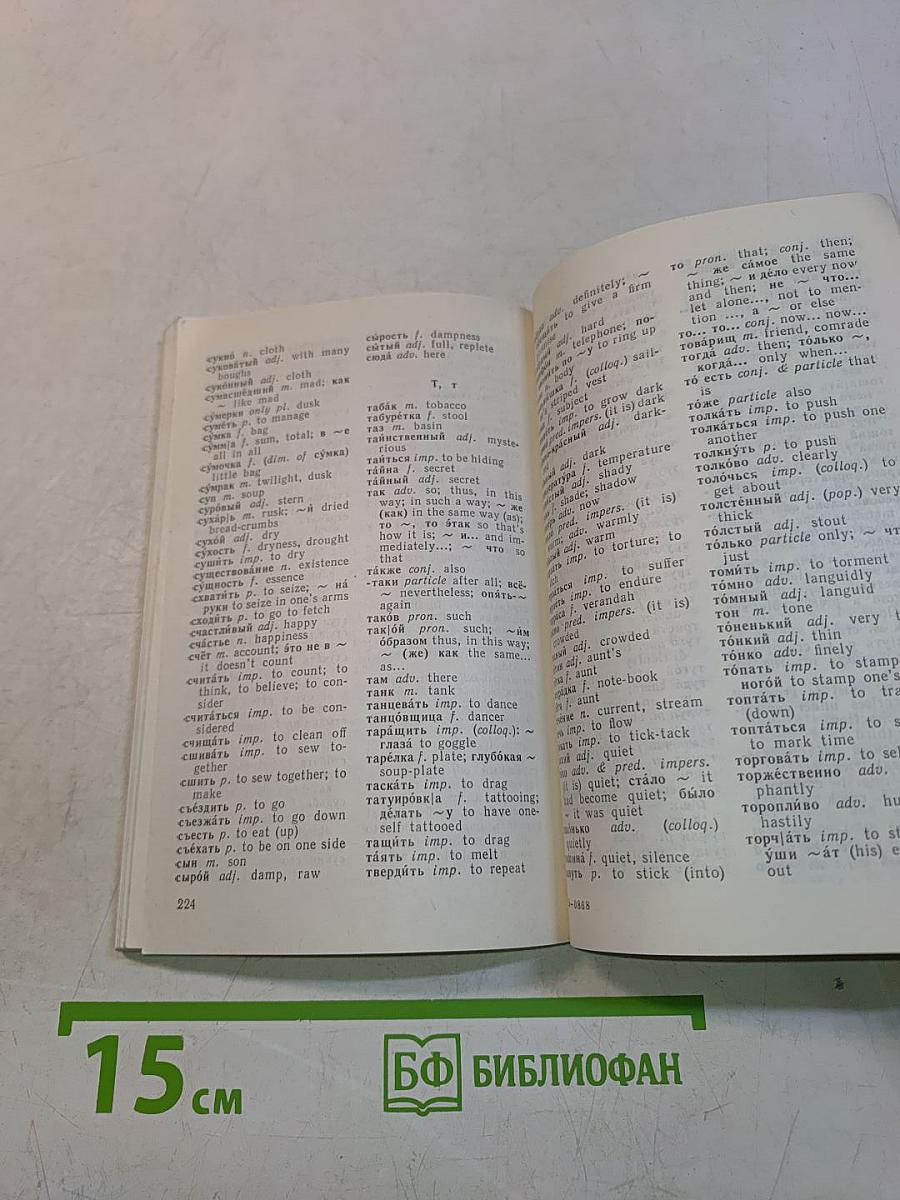 сукно́ n. cloth
сукова́тый adj. with many
boughs
суко́нный adj. cloth
сумасше́дший m. mad; как
~ like mad
су́мерки only pl. dusk
суме́ть p. to manage
су́мка f. bag
су́мм|а f. sum, total; в ~е
all in all
су́мочка f. (dim. of су́мка)
little bag
су́мрак m. twilight, dusk
суп m. soup
суро́вый adj. stern
суха́р|ь m. rusk; ~и́ dried
bread-crumbs
сухо́й adj. dry
су́хость f. dryness, drought
суши́ть imp. to dry
существова́ние n. existence
су́щность f. essence
схвати́ть p. to seize; ~ на́
руки to seize in one's arms
сходи́ть p. to go to fetch
счастли́вый adj. happy
сча́стье n. happiness
счёт m. account; э́то не в ~
it doesn't count
счита́ть imp. to count; to
think, to believe; to con-
sider
счита́ться imp. to be con-
sidered
счища́ть imp. to clean off
сшива́ть imp. to sew to-
gether
сшить p. to sew together; to
make
съе́здить p. to go
съезжа́ть imp. to go down
съесть p. to eat (up)
съе́хать p. to be on one side
сын m. son
сыро́й adj. damp, raw
224
сы́рость f. dampness
сы́тый adj. full, replete
сюда́ adv. here
Т, т
таба́к m. tobacco
табуре́тка f. stool
таз m. basin
таи́нственный adj. myste-
rious
таи́ться imp. to be hiding
та́йна f. secret
та́йный adj. secret
так adv. so; thus, in this
way; in such a way; ~ же
(как) in the same way (as);
то ~, то э́так so that's
how it is; ~ и... and im-
mediately...; ~ что so
that
та́кже conj. also
-таки particle after all; всё-
~ nevertheless; опя́ть-~
again
тако́в pron. such
так|о́й pron. such; ~и́м
о́бразом thus, in this way;
~ (же) как the same...
as...
там adv. there
танк m. tank
танцева́ть imp. to dance
танцо́вщица f. dancer
тара́щить imp. (colloq.): ~
глаза́ to goggle
таре́лка f. plate; глубо́кая ~
soup-plate
таска́ть imp. to drag
татуиро́вк|а f. tattooing;
де́лать ~у to have one-
self tattooed
тащи́ть imp. to drag
та́ять imp. to melt
тверди́ть imp. to repeat
adv. definitely; ~
to give a firm
adj. hard
m. telephone; по-
по ~у to ring up
body
f. (colloq.) sail-
striped vest
subject
imp. to grow dark
pred. impers. (it is) dark
-кра́сный adj. dark-
adj. dark
f. temperature
adj. shady
f. shade; shadow
adv. now
pred. impers. (it is)
adv. warmly
adj. warm
imp. to torture; to
imp. to suffer
imp. to endure
f. verandah
pred. impers. (it is)
crowded
adj. crowded
adj. aunt's
f. aunt
f. note-book
f. aunt
n. current, stream
imp. to flow
imp. to tick-tack
adj. quiet
adv. & pred. impers.
is) quiet; ста́ло ~ it
had become quiet; бы́ло
~ it was quiet
adv. (colloq.)
quietly
f. quiet, silence
p. to stick (into)
-0868
то pron. that; conj. then;
~ же са́мое the same
thing; ~ и де́ло every now
and then; не ~ что...
let alone..., not to men-
tion ..., а ~ or else
то... то... conj. now... now...
това́рищ m. friend, comrade
тогда́ adv. then; то́лько ~,
когда́... only when...
то́ есть conj. & particle that
is
то́же particle also
толка́ть imp. to push
толка́ться imp. to push one
another
толкну́ть p. to push
толко́во adv. clearly
толо́чься imp. (colloq.) to
get about
толстённый adj. (pop.) very
thick
то́лстый adj. stout
то́лько particle only; ~ чт
just
томи́ть imp. to torment
то́мно adv. languidly
то́мный adj. languid
тон m. tone
то́ненький adj. very t
то́нкий adj. thin
то́нко adv. finely
то́пать imp. to stamp
ного́й to stamp one's
топта́ть imp. to tra
(down)
топта́ться imp. to s
to mark time
торгова́ть imp. to sel
торже́ственно adv.
phantly
торопли́во adv. hu
hastily
торч|а́ть imp. to st
у́ши ~а́т (his) e
out
15 см
БФ БИБЛИОФАН